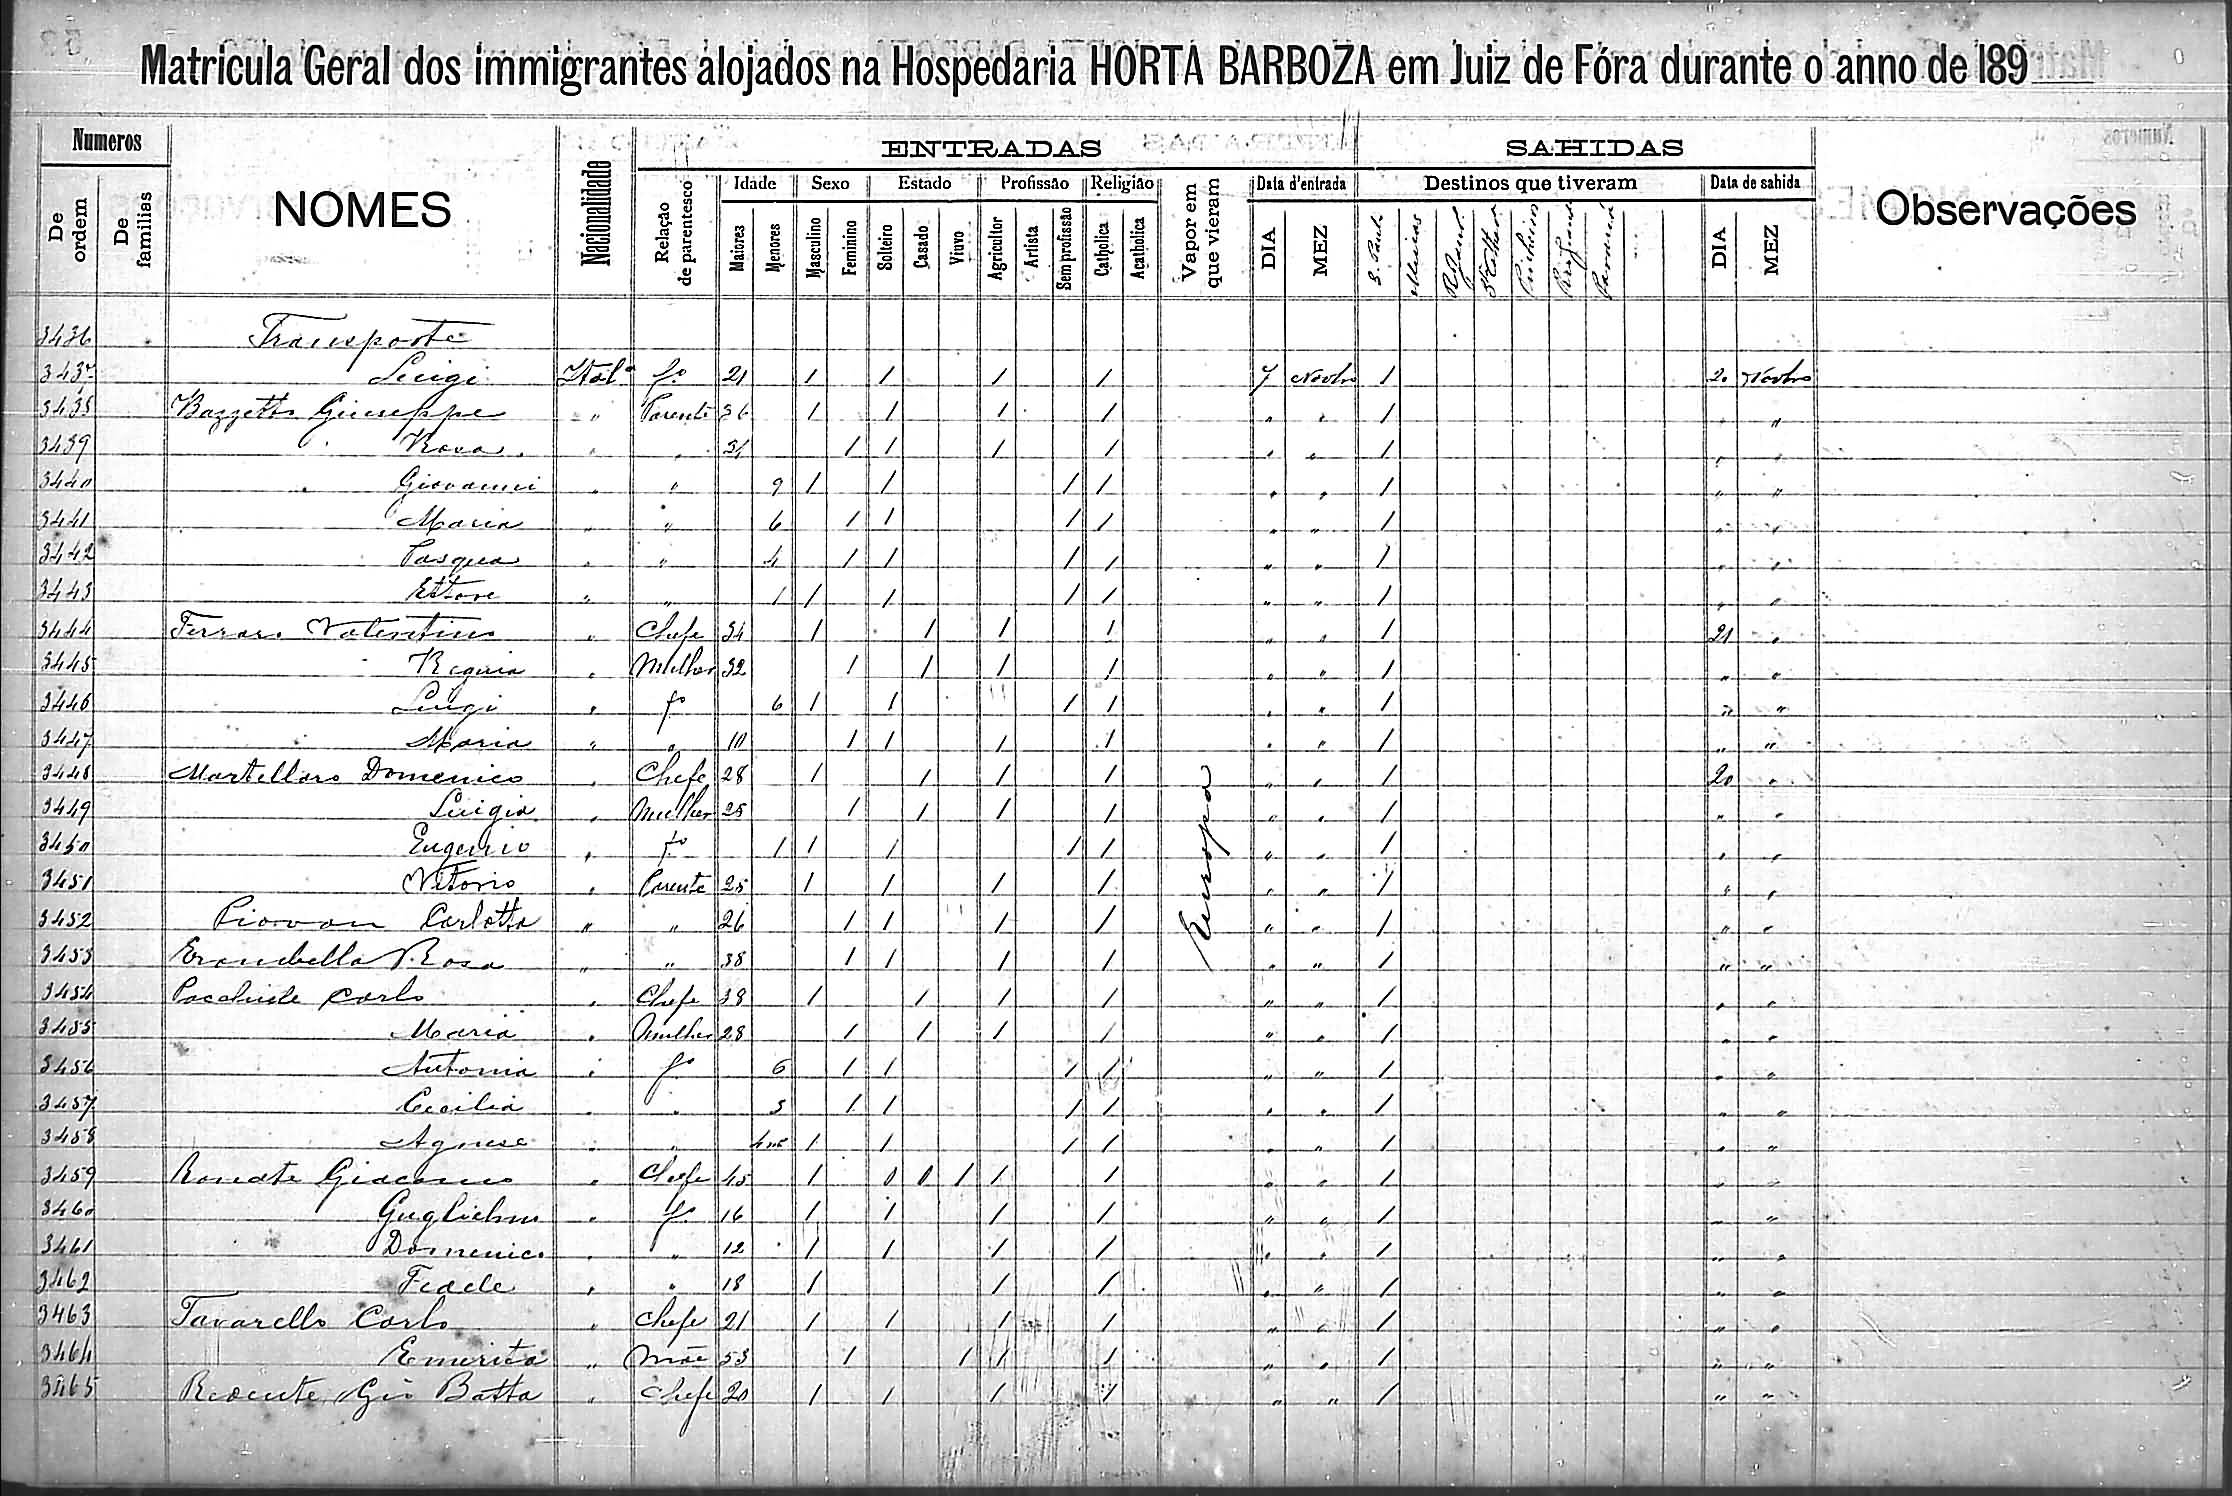 Matricula Geral dos immigrantes alojados na Hospedaria HORTA BARBOZA em Juiz de Fóra durante o anno de 189
Numeros ENTRADAS SAHIDAS
De ordem De familias NOMES Nacionalidade Relação de parentesco Idade Sexo Estado Profissão Religião Vapor em que vieram Data d'entrada Destinos que tiveram Data de sahida Observações
Maiores Menores Masculino Feminino Solteiro Casado Viuvo Agricultor Artista Sem profissão Catholica Acatholica DIA MEZ S. Paulo Minas DIA MEZ
3436 Transporte
3437 Luigi Ital.ª fº 21 1 1 1 1 7 Novbro 1 20 Novbro
3438 Giuseppe " Parente 36 1 1 1 1 " " 1 " "
3439 Rosa " " 31 1 1 1 1 " " 1 " "
3440 Giovanni " " 9 1 1 1 1 " " 1 " "
3441 Maria " " 6 1 1 1 1 " " 1 " "
3442 Pasqua " " 4 1 1 1 1 " " 1 " "
3443 Ettore " " 1 1 1 1 1 " " 1 " "
3444 Ferrari Valentino " Chefe 34 1 1 1 1 " " 1 21 "
3445 " Mulher 32 1 1 1 1 " " 1 " "
3446 Luigi " fº 6 1 1 1 1 " " 1 " "
3447 Maria " " 10 1 1 1 1 " " 1 " "
3448 Domenico " Chefe 28 1 1 1 1 " " 1 20 "
3449 Luigia " Mulher 25 1 1 1 1 " " 1 " "
3450 Eugenio " fº 1 1 1 1 1 " " 1 " "
3451 Vitorio " Parente 25 1 1 1 1 " " 1 " "
3452 Piovan Carlotta " " 26 1 1 1 1 Europa " " 1 " "
3453 Rosa " " 38 1 1 1 1 " " 1 " "
3454 Carlo " Chefe 38 1 1 1 1 " " 1 " "
3455 Maria " Mulher 28 1 1 1 1 " " 1 " "
3456 Antonia " fº 6 1 1 1 1 " " 1 " "
3457 Cecilia " " 3 1 1 1 1 " " 1 " "
3458 Agnese " " 1 1 1 1 " " 1 " "
3459 Giacomo " Chefe 45 1 0 0 1 1 1 " " 1 " "
3460 Guglielmo " fº 16 1 1 1 1 " " 1 " "
3461 Domenico " " 12 1 1 1 1 " " 1 " "
3462 Fedele " " 18 1 1 1 " " 1 " "
3463 Tavarello Carlo " Chefe 21 1 1 1 1 " " 1 " "
3464 Emerita " Mãe 53 1 1 1 1 " " 1 " "
3465 Gio Batta " Chefe 20 1 1 1 1 " " 1 " "